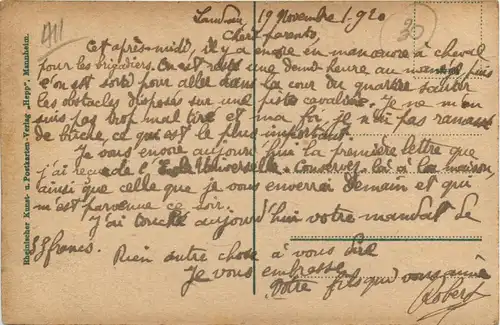 Landau, 19 Novembre 1920
Chers parents,
Cet après-midi, il y a encore eu manœuvre à cheval
pour les brigadiers. On est resté une demi heure au manège puis
l'on est sorti pour aller dans la cour du quartier sauter
les obstacles disposés sur une piste cavalière. Je ne m'en
suis pas trop mal tiré et ma foi, je n'ai pas ramassé
de bûche, ce qui est le plus important.
Je vous envoie aujourd'hui la première lettre que
j'ai reçue de l'Ecole Universelle. Conservez-la à la maison,
ainsi que celle que je vous enverrai demain et qui
m'est parvenue ce soir.
J'ai touché aujourd'hui votre mandat de
francs.
Rien autre chose à vous dire
Je vous embrasse
Votre fils qui vous aime
Robert
Rheinischer Kunst- u. Postkarten-Verlag „Hepp", Mannheim.